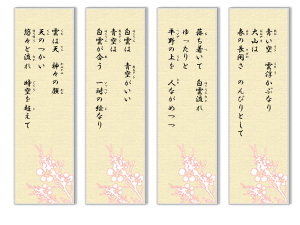 青い空 雲浮かぶなり
大山は
春の長閑さ のんびりとして
落ち着いて 白雲流れ
ゆったりと
平野の上を 人ながめつつ
白雲は 青空がいい
青空は
白雲が合う 一対の絵なり
雲は天 神々の顔
天のつかい
悠々と流れ 時空を超えて